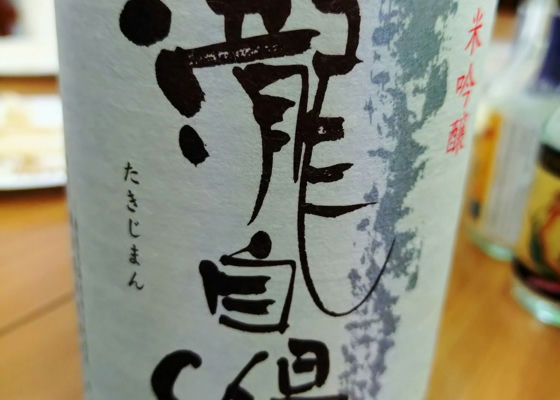 米吟醸
瀧自慢
たきじまん